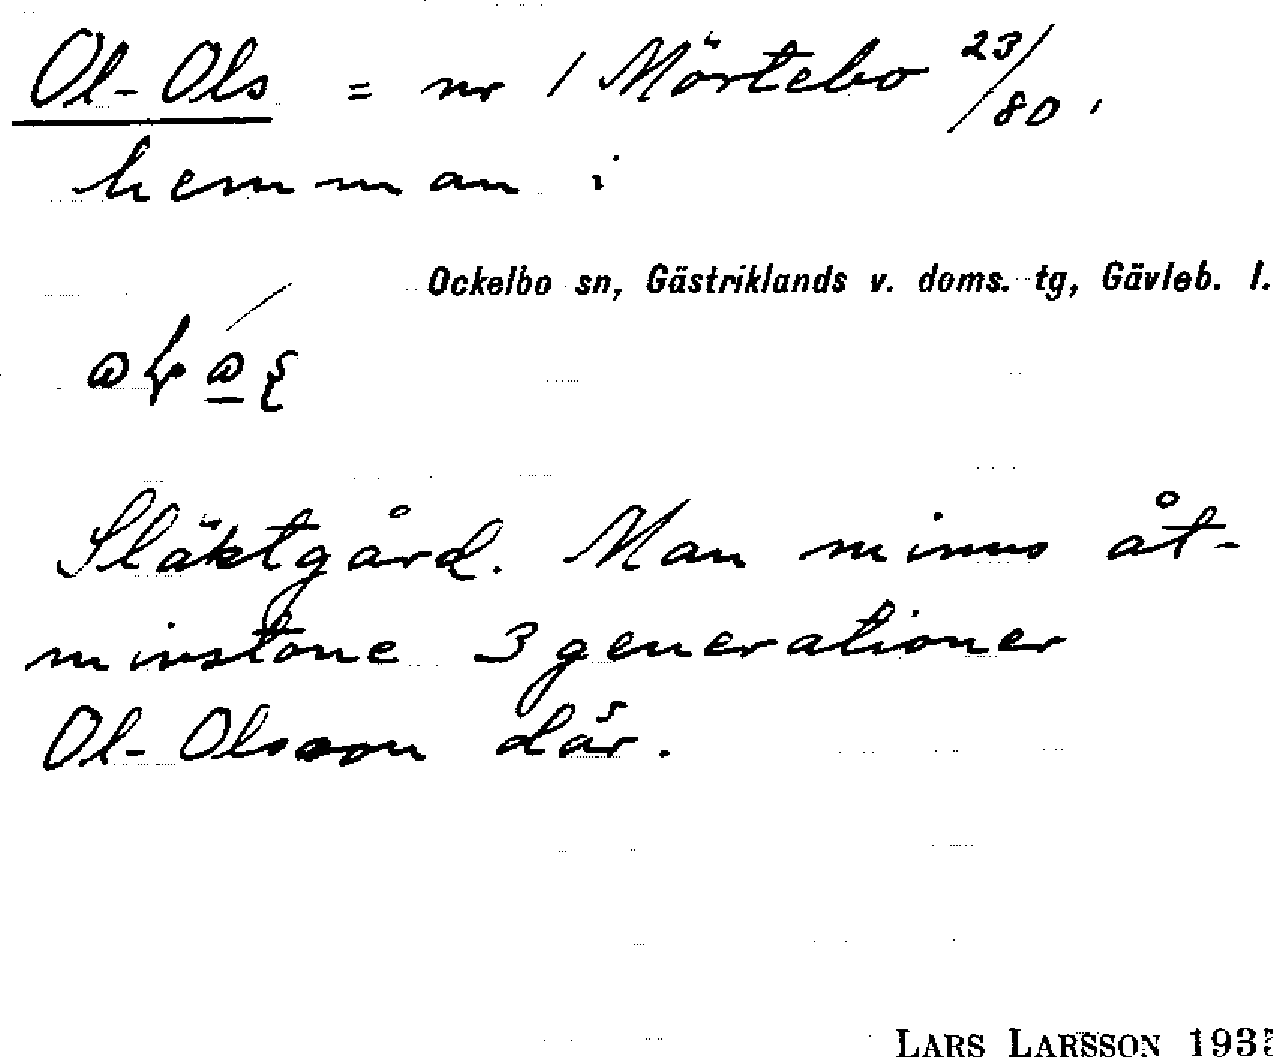 Ol-Ols = nr 1 Mörtebo 23/80,
hemman i
Ockelbo sn, Gästriklands v. doms. tg, Gävleb. l.
Släktgård. Man minns åt-
minstone 3 generationer
Ol-Olsson där.
LARS LARSSON 193